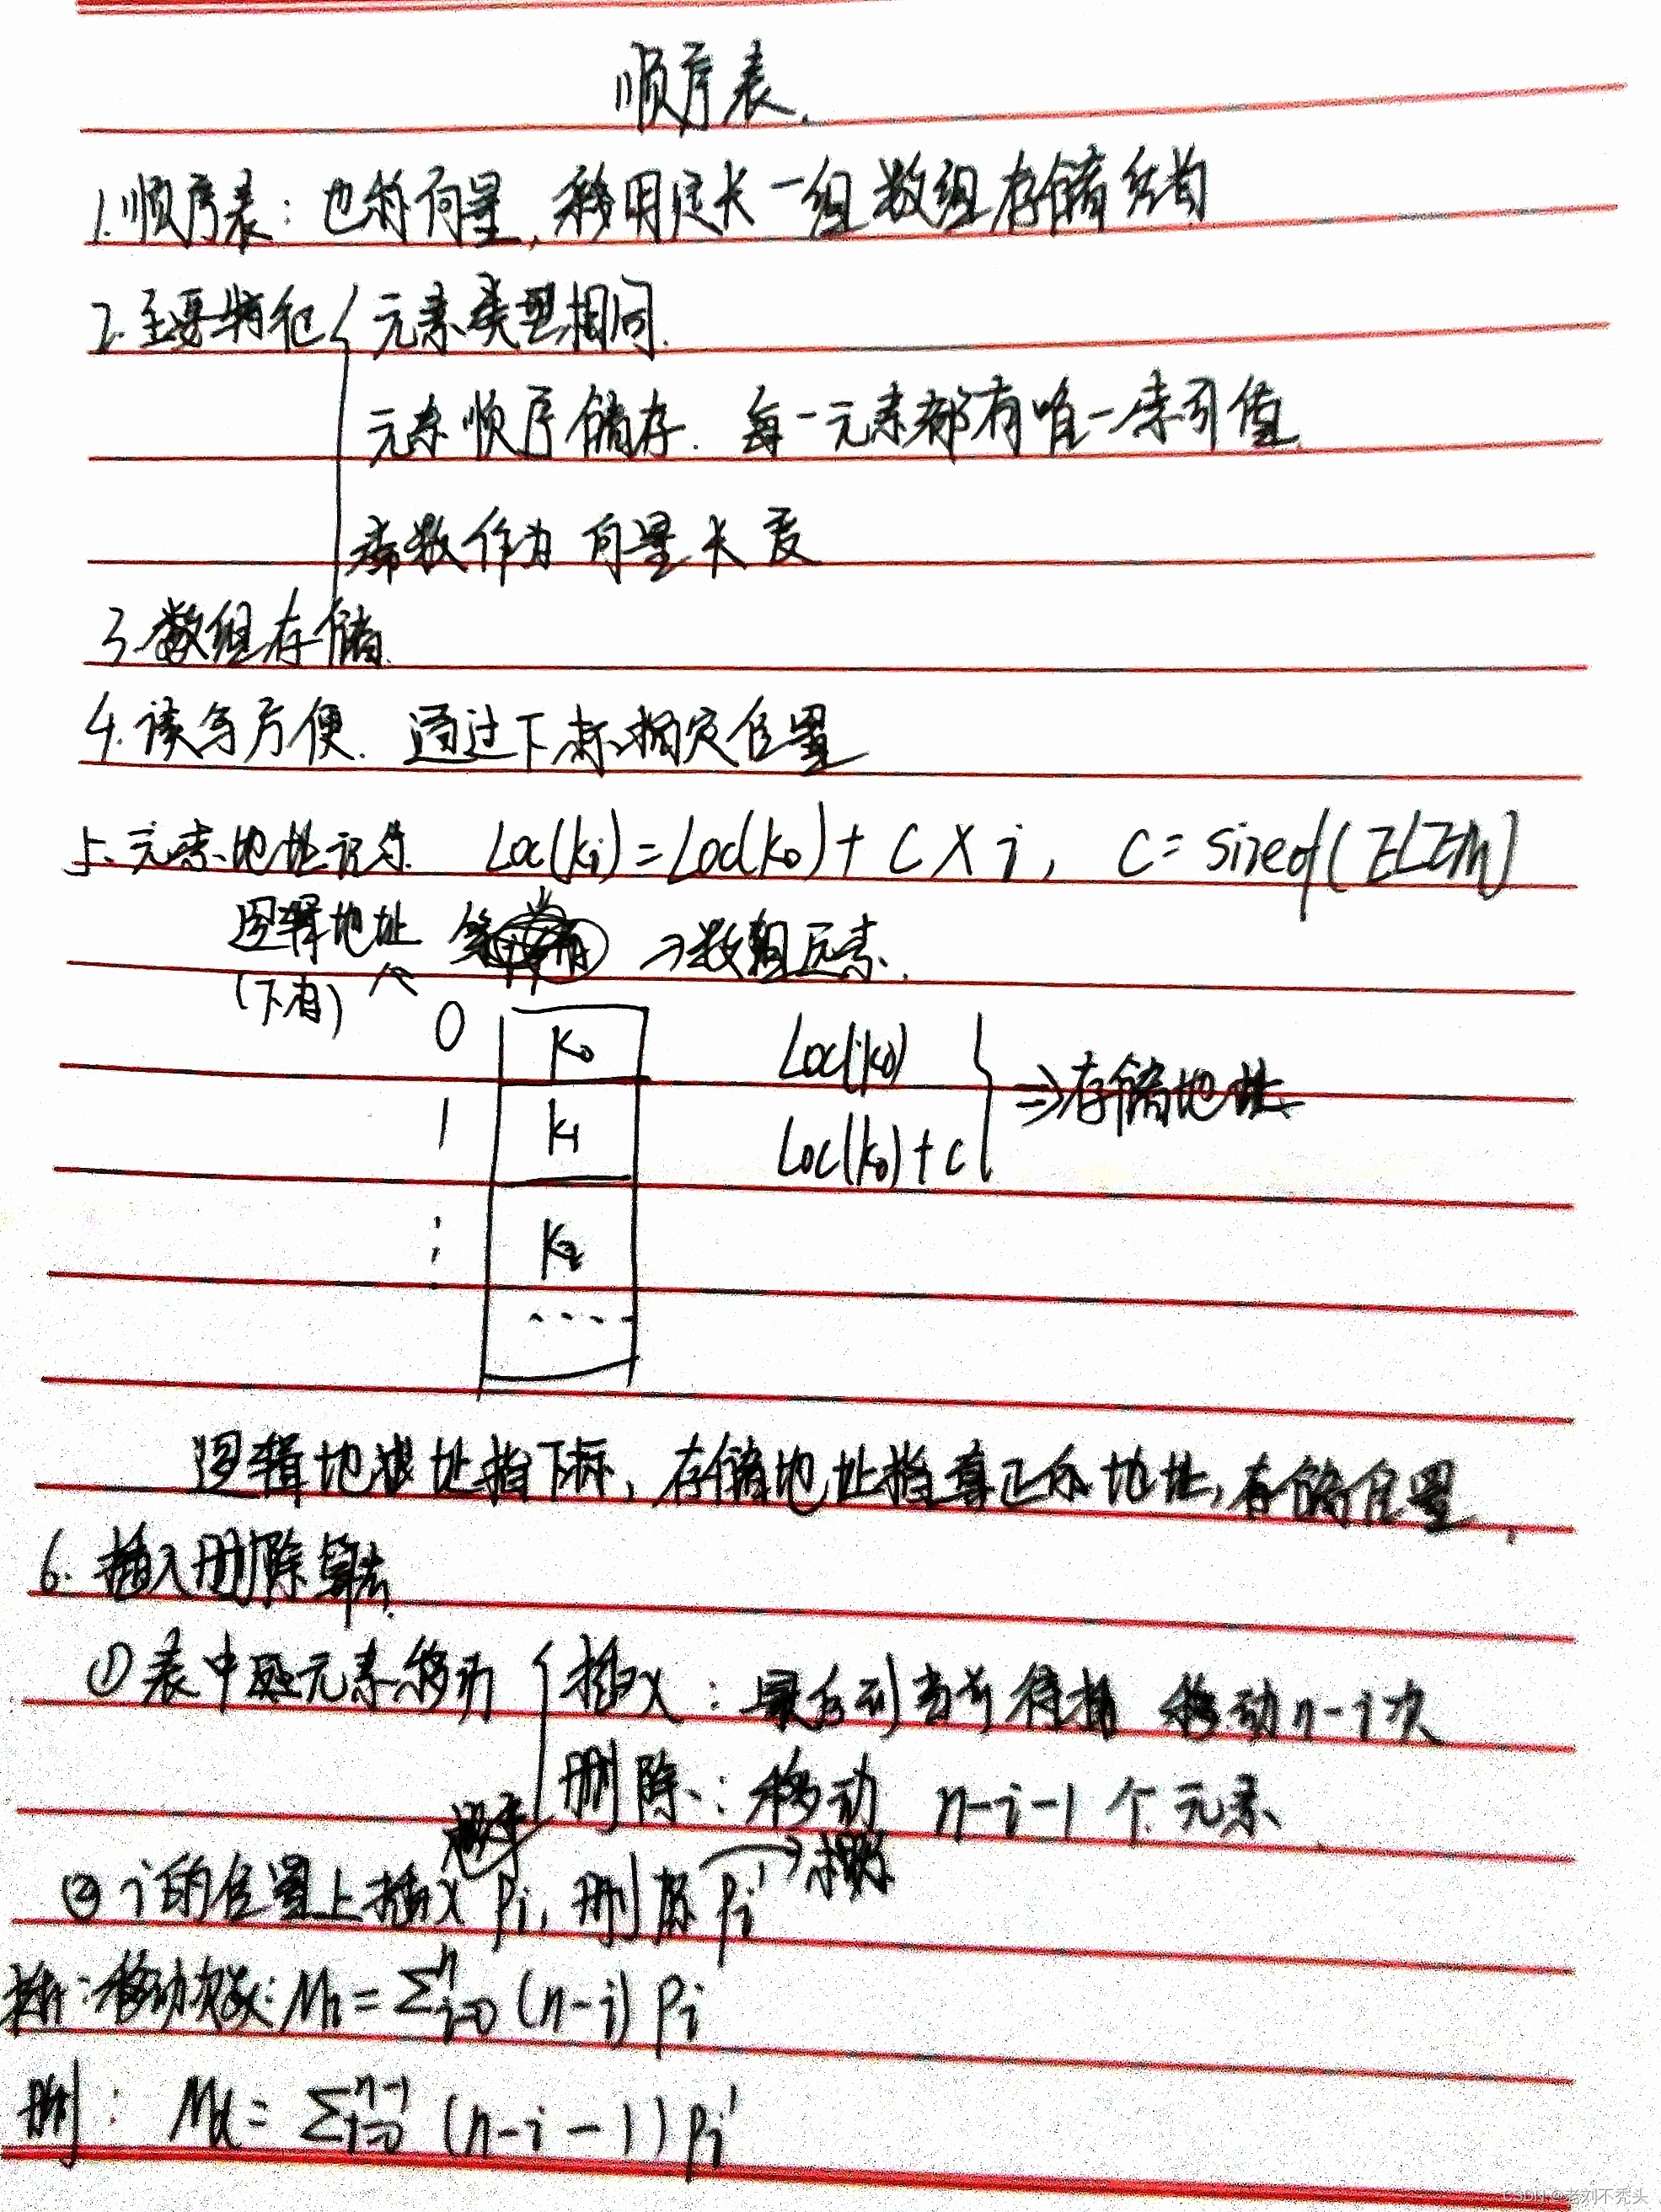 顺序表.
1.顺序表：也称向量，采用定长一组数组存储结构
2.主要特征{元素类型相同.
元素顺序储存. 每一元素都有唯一索引值.
数作为向量长度
3.数组存储.
4.读写方便. 通过下标指定位置
5.元素地址记录 Loc(ki)=Loc(k0)+C×i, C=sizeof(ELEM)
逻辑地址 ⇒数组元素.
(下 )
0 k0 Loc(k0)
⇒存储地址
1 k1 Loc(k0)+c
⋮ k2
.....
逻辑地址指下标，存储地址指真正的地址，存储位置.
6.插入删除算法.
①表中元素移动{插入：最后到当前待插 移动n-i次
删除：移动 n-i-1个元素
概率
②i的位置上插入pi, 删除pi' →概率
插：移动次数：Mi=∑ⁿi=0 (n-i)pi
删：Md=∑ⁿ⁻¹i=0 (n-i-1)pi'
CSDN @老刘不秃头